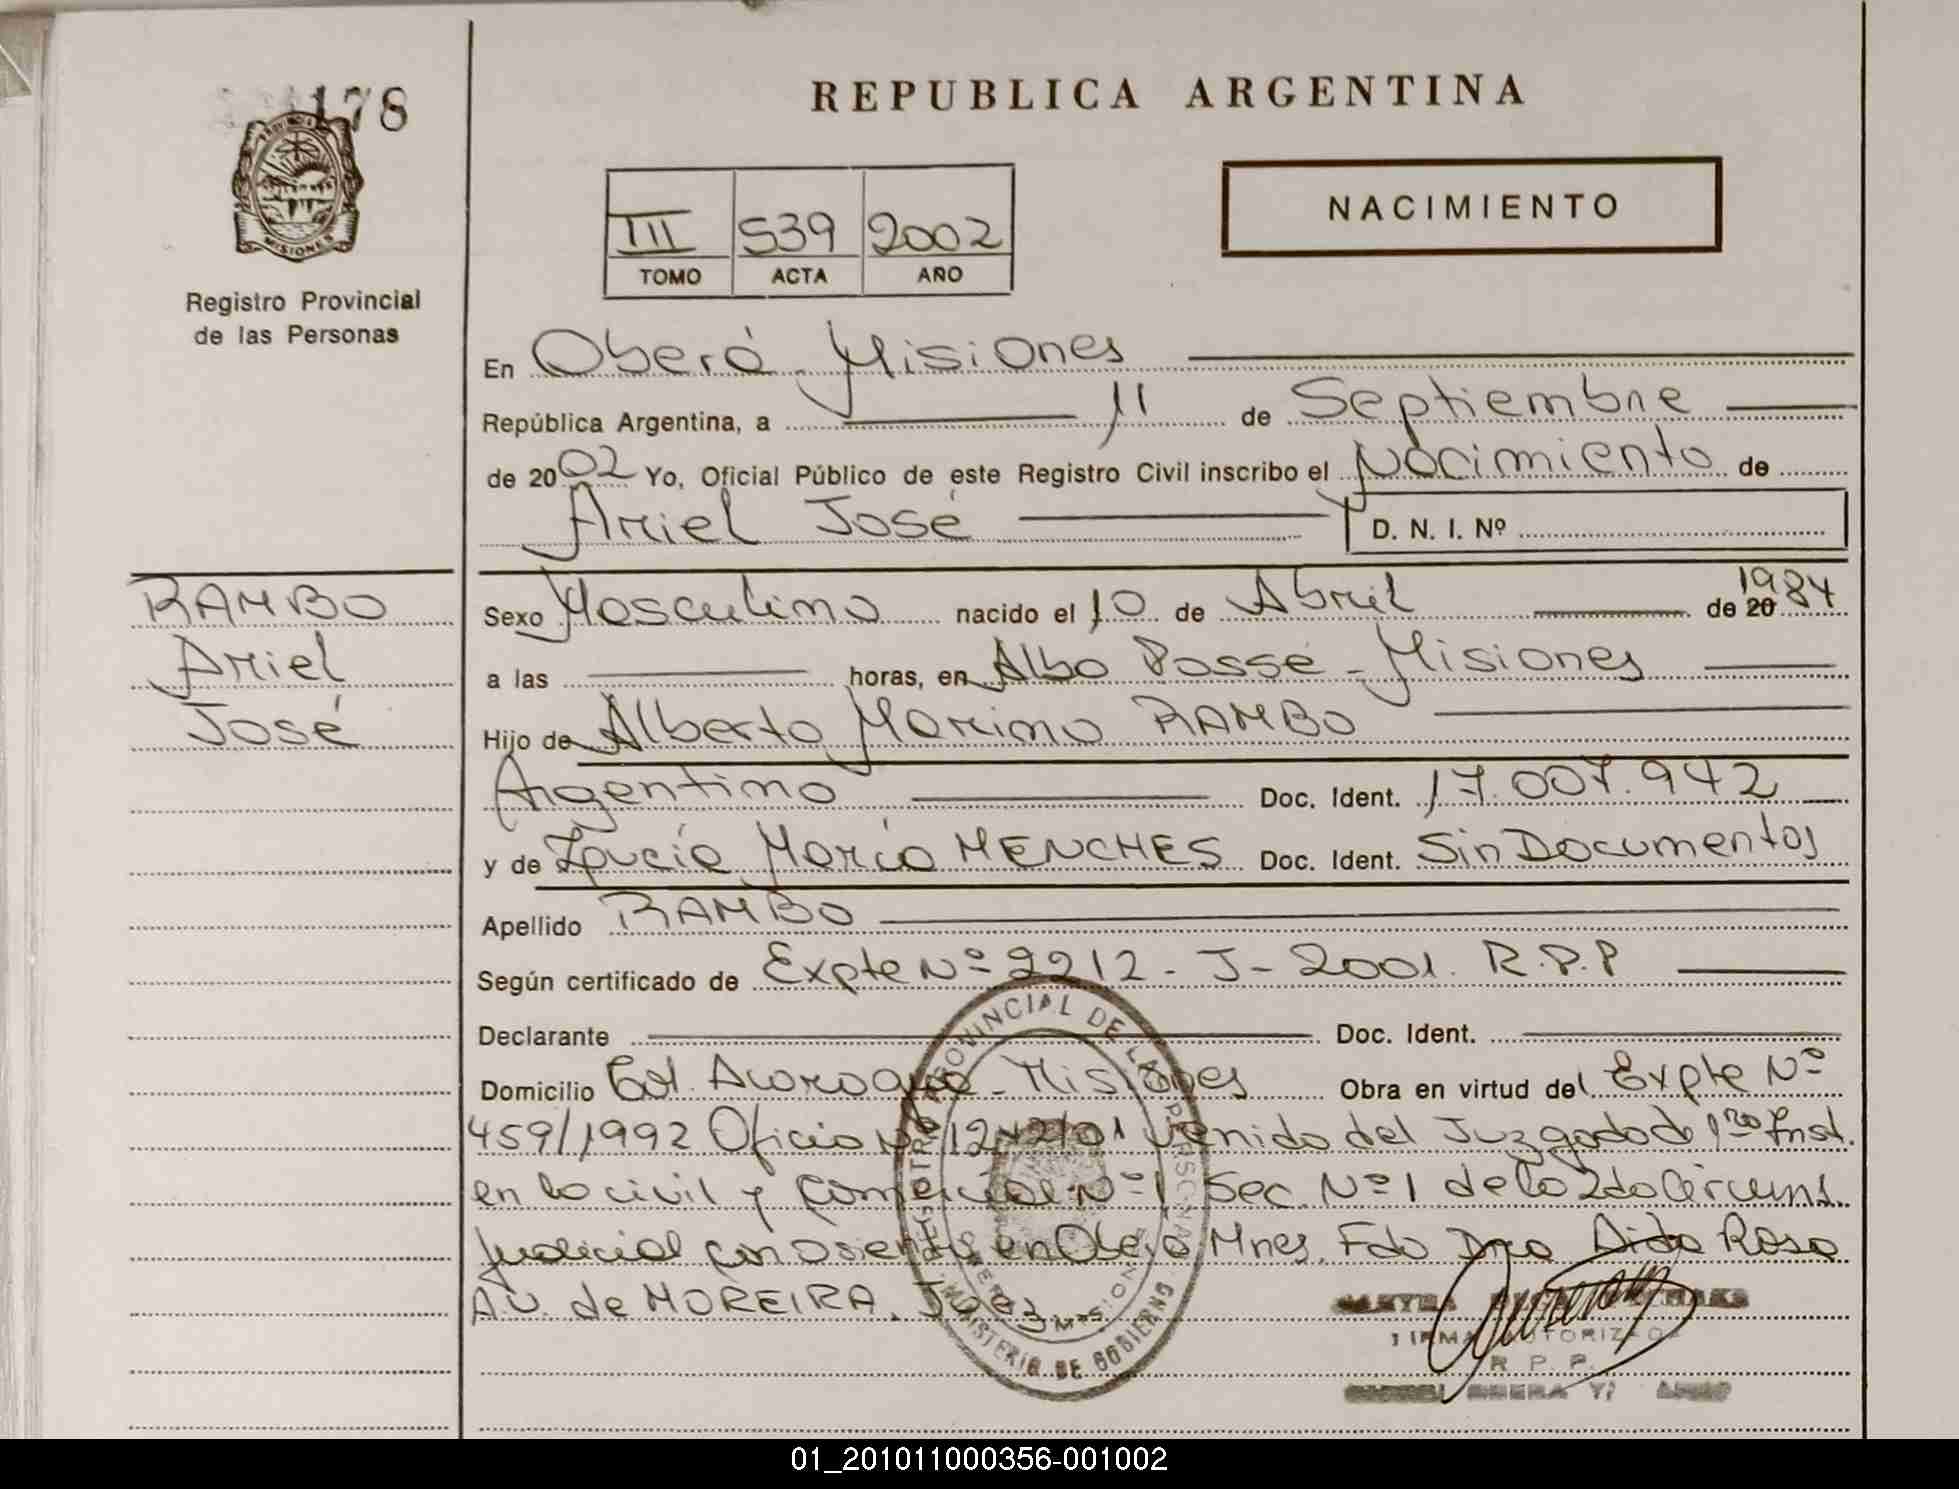 178
PROVINCIA
MISIONES
Registro Provincial
de las Personas
REPUBLICA ARGENTINA
NACIMIENTO
III 539 2002
TOMO ACTA AÑO
En Oberá - Misiones
República Argentina, a 11 de Septiembre
de 2002 Yo, Oficial Público de este Registro Civil inscribo el Nacimiento de
Ariel José D. N. I. Nº
RAMBO
Ariel
José
Sexo Masculino nacido el 10 de Abril de 20 1984
a las horas, en Alba Posse - Misiones
Hijo de Alberto Maximo RAMBO
Argentino Doc. Ident. 17.007.942
y de María MENCHES Doc. Ident. Sin Documentos
Apellido RAMBO
Según certificado de Expte Nº 2212 - J - 2001. R.P.P
Declarante Doc. Ident.
Domicilio Col. Acaragua - Misiones Obra en virtud del Expte Nº
459/1992 Oficio Nº venido del Juzgado de 1ra Inst.
en lo civil y Comercial Nº 1 Sec. Nº 1 de la 2da Circuns.
Judicial con asiento en Oberá Mnes. Fdo Dra Aida Rosa
A.V. de MOREIRA. Juez
REGISTRO PROVINCIAL DE LAS PERSONAS
MINISTERIO DE GOBIERNO
MISIONES
FIRMA AUTORIZADA
R. P. P.
01_201011000356-001002